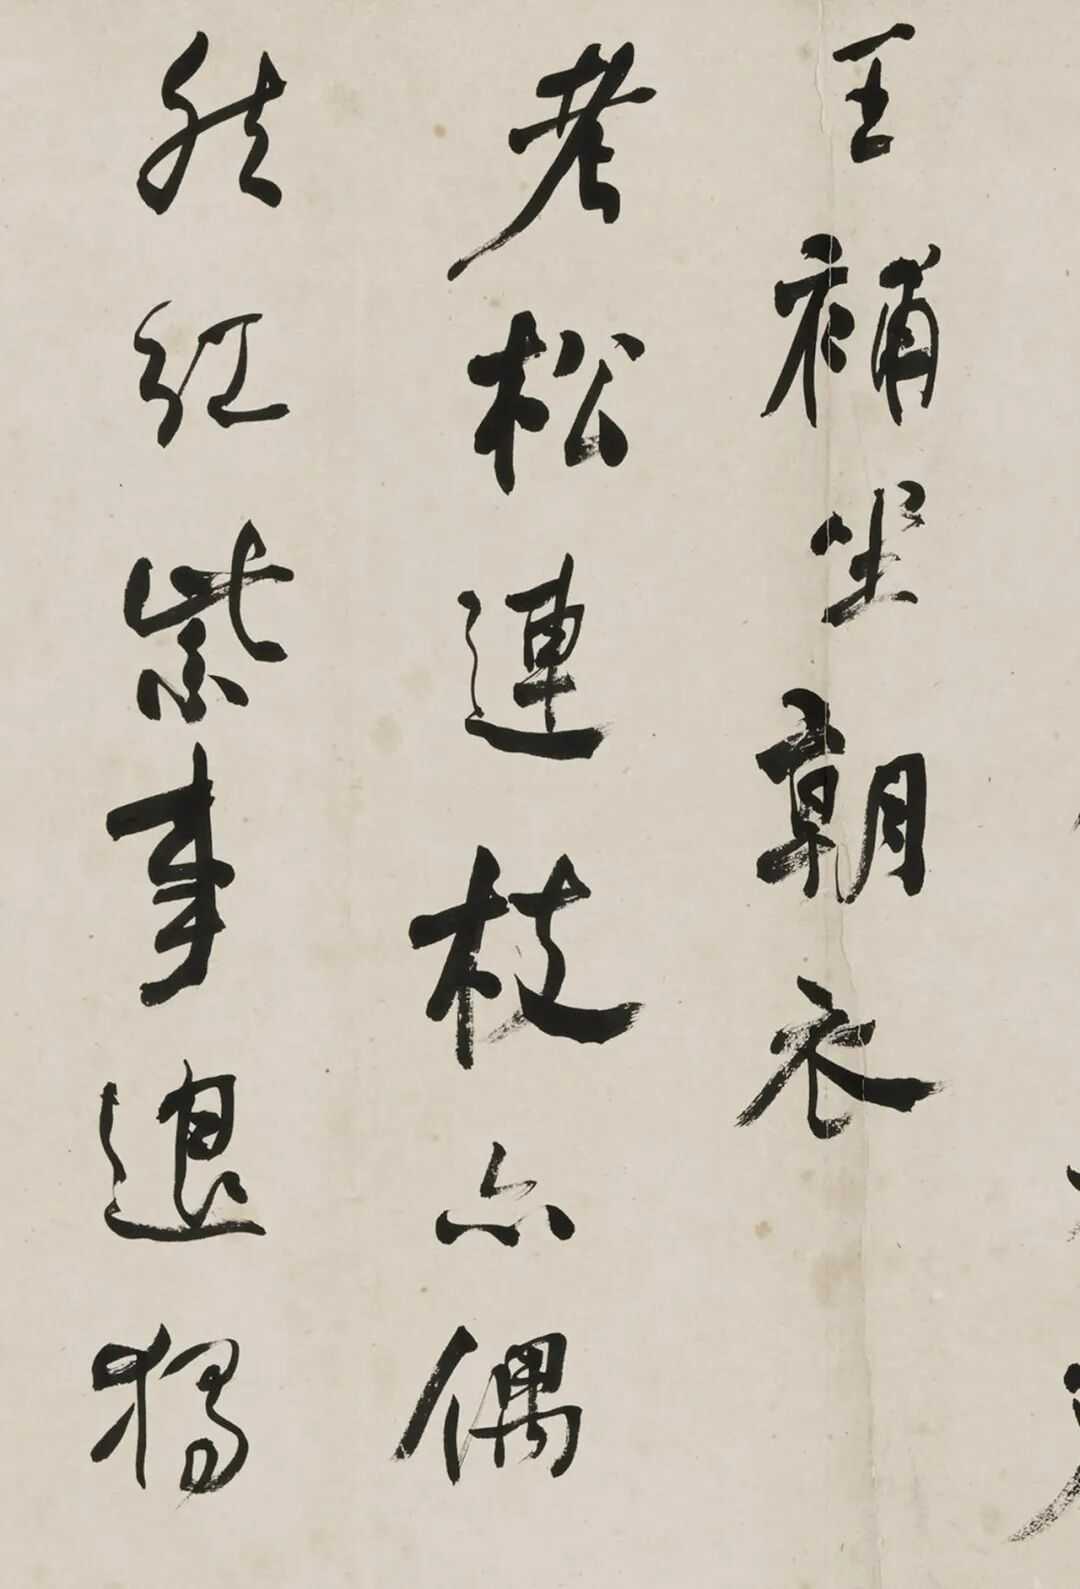 王補坐朝衣
老松連枝亦偶
然紅紫事退獨